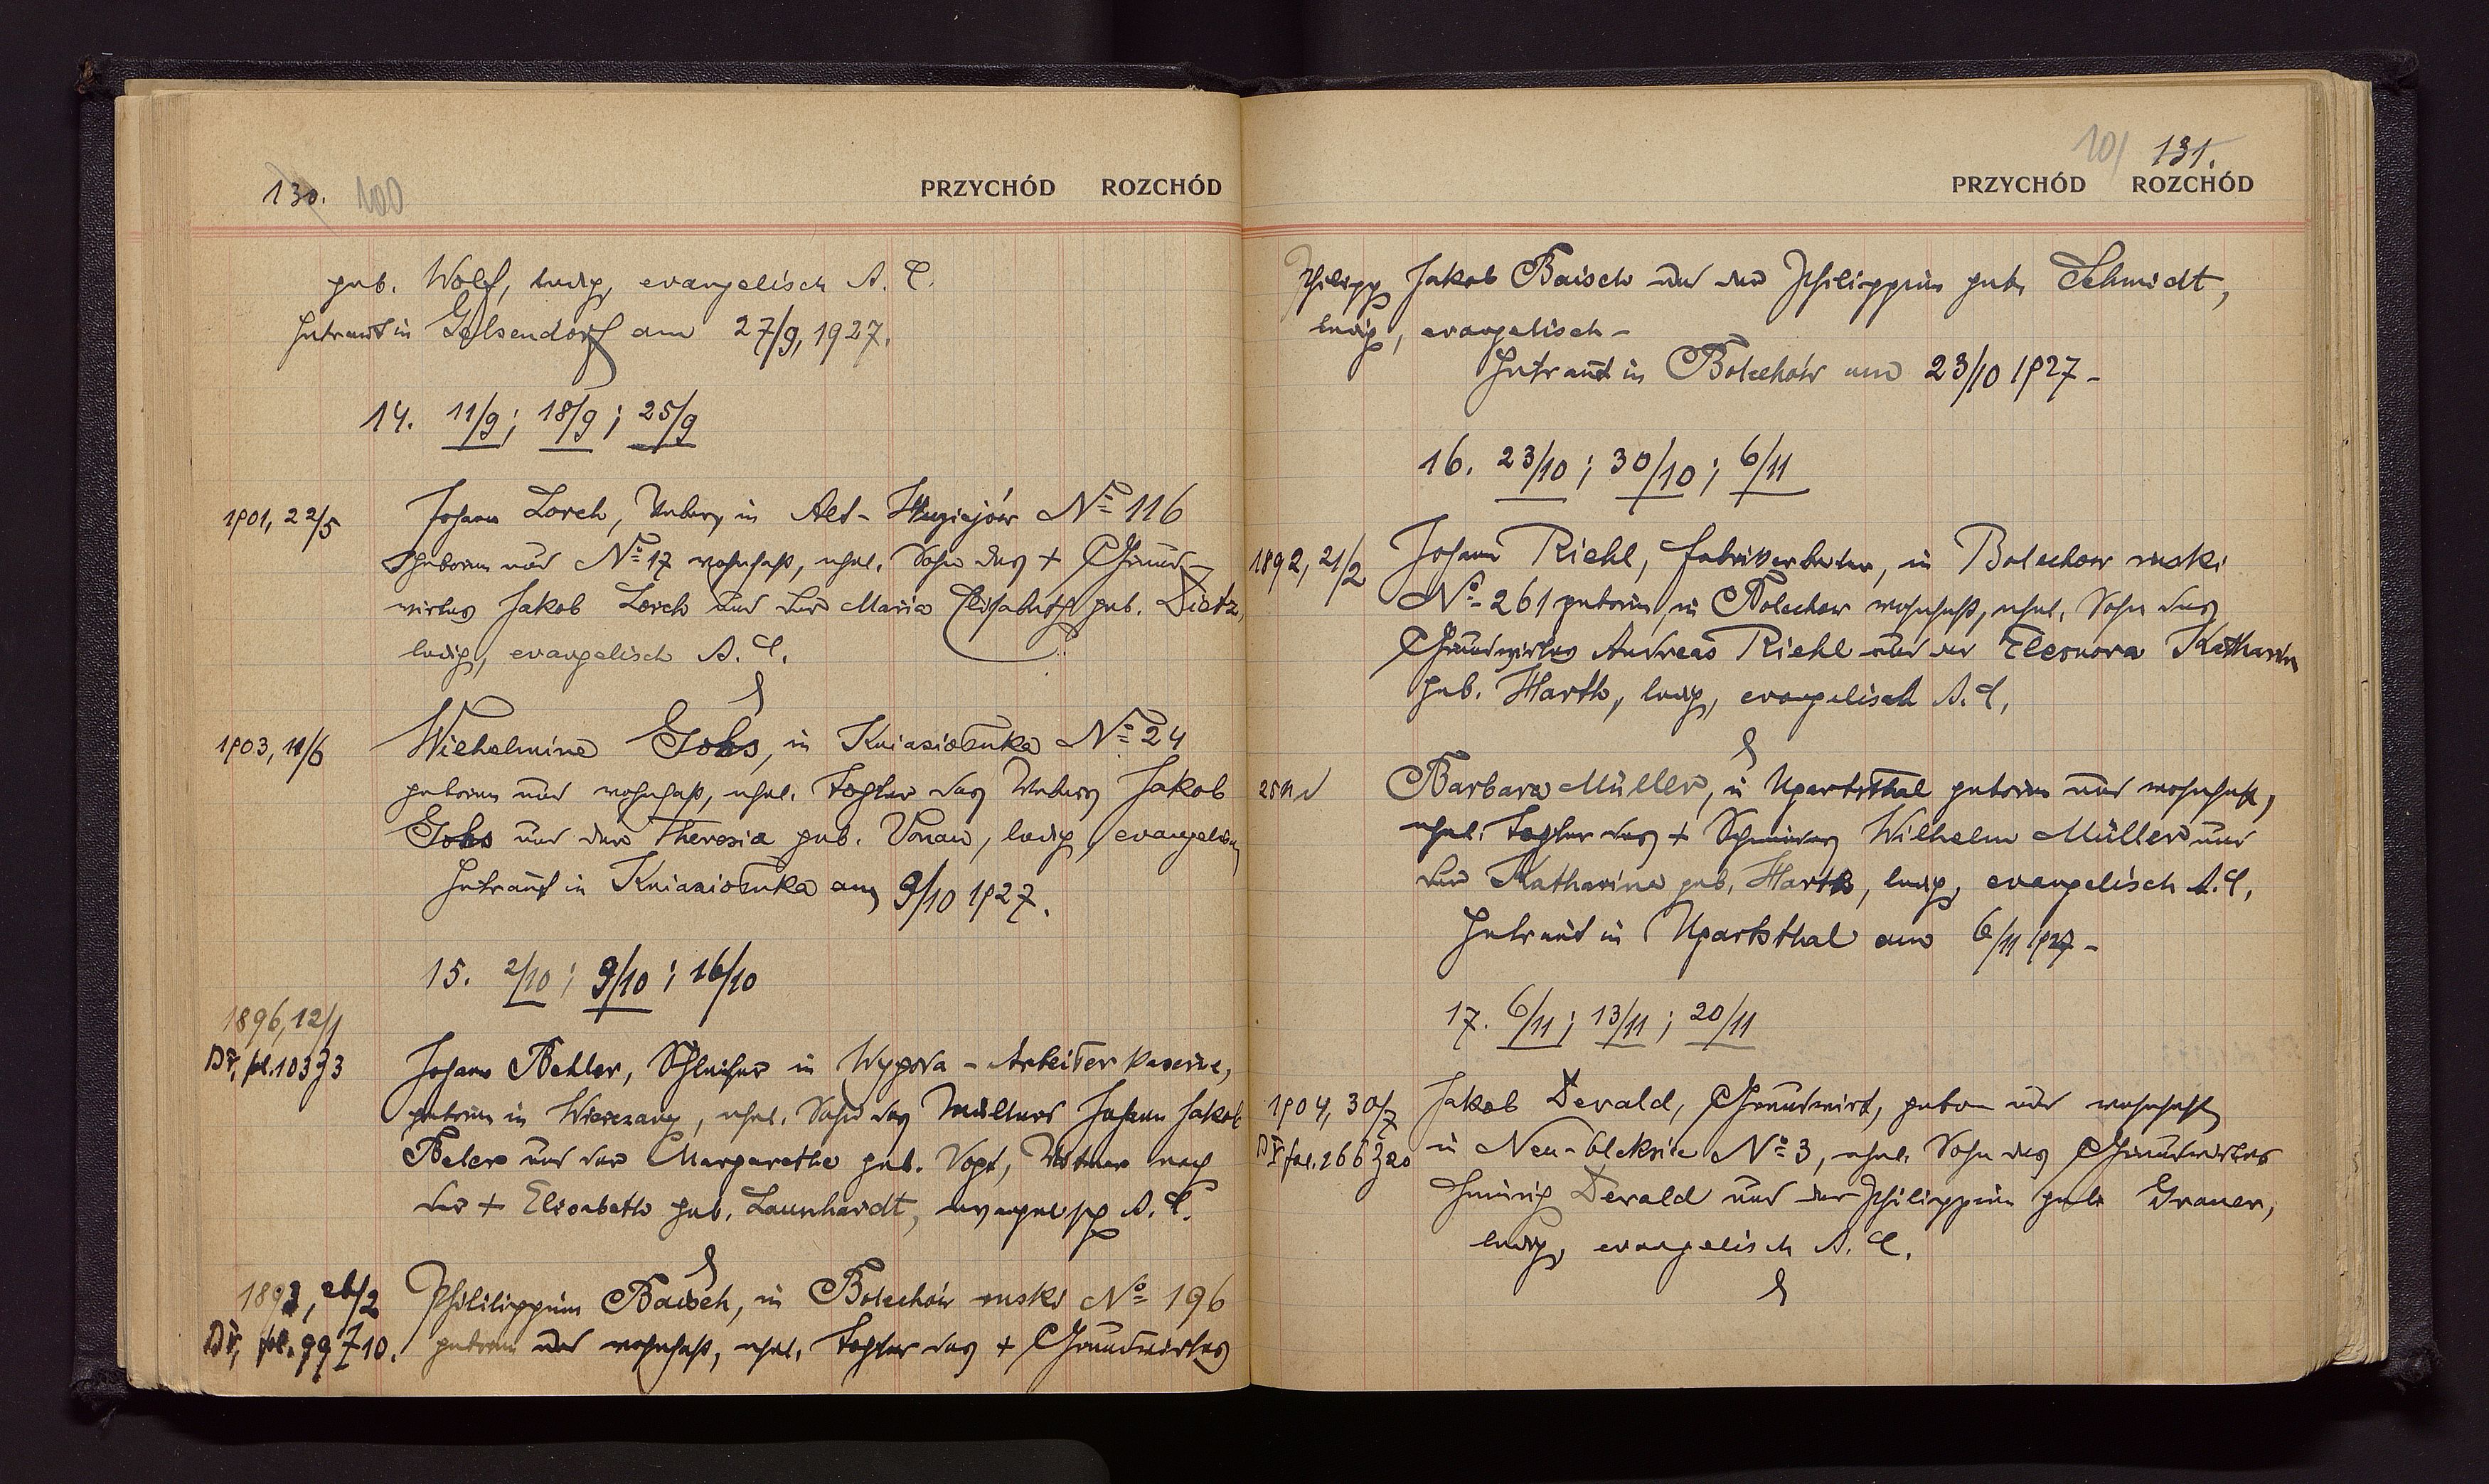 130. 100
PRZYCHÓD ROZCHÓD
geb. Wolf, ledig, evangelisch A. C.
Getraut in Gelsendorf am 27/9, 1927.
14. 11/9; 18/9; 25/9
1901, 22/5
Johann Lorch, Weber, in Alt- № 116
geboren und № 17 wohnhaft, ehel. Sohn des + Grund-
wirtes Jakob Lorch und der Maria Elisabeth geb. Dietz,
ledig, evangelisch A. C.
&
1903, 11/6
Wilhelmine Gohs, in Kniaziołuka № 24
geboren und wohnhaft, ehel. Tochter des Webers Jakob
Gohs und der Theresia geb. Vonau, ledig, evangelisch
Getraut in Kniaziołuka am 9/10 1927.
15. 2/10; 9/10; 16/10
1896, 12/1
fol. 103
Johann Behler, Schleifer in Wygoda - Arbeiterkaserne,
geboren in Wierzany, ehel. Sohn des Müllers Johann Jakob
Beler und der Margarethe geb. Vogt, Witwer nach
der + Elisabeth geb. Launhardt, evangelisch A. C.
&
fol. 99 Z 10.
Philippine Baisch, in Bolechów ruski № 196
geboren und wohnhaft, ehel. Tochter des + Grundwirtes
101 131.
PRZYCHÓD ROZCHÓD
Philipp Jakob Baisch und der Philippine geb. Schmidt,
ledig, evangelisch -
Getraut in Bolechów am 23/10 1927 -
16. 23/10; 30/10; 6/11
1892, 21/2
Johann Riehl, Fabrikarbeiter, in Bolechow ruski
№ 261 geboren, in Bolechow wohnhaft, ehel. Sohn des
Grundwirtes Andreas Riehl und der Eleonora Katharina
geb. Harth, ledig, evangelisch A. C.
&
Barbara Müller, in Ugartsthal geboren und wohnhaft,
ehel. Tochter des + Schmiedes Wilhelm Müller und
der Katharina geb. Harth, ledig, evangelisch A. C.
Getraut in Ugartsthal am 6/11 1927 -
17. 6/11; 13/11; 20/11
1904, 30/7
fol. 266 Z 20
Jakob Derald, Grundwirt, geboren und wohnhaft
in Neu-Oleksice № 3, ehel. Sohn des Grundwirtes
Heinrich Derald und der Philippine geb. Grauer,
ledig, evangelisch A. C.
&